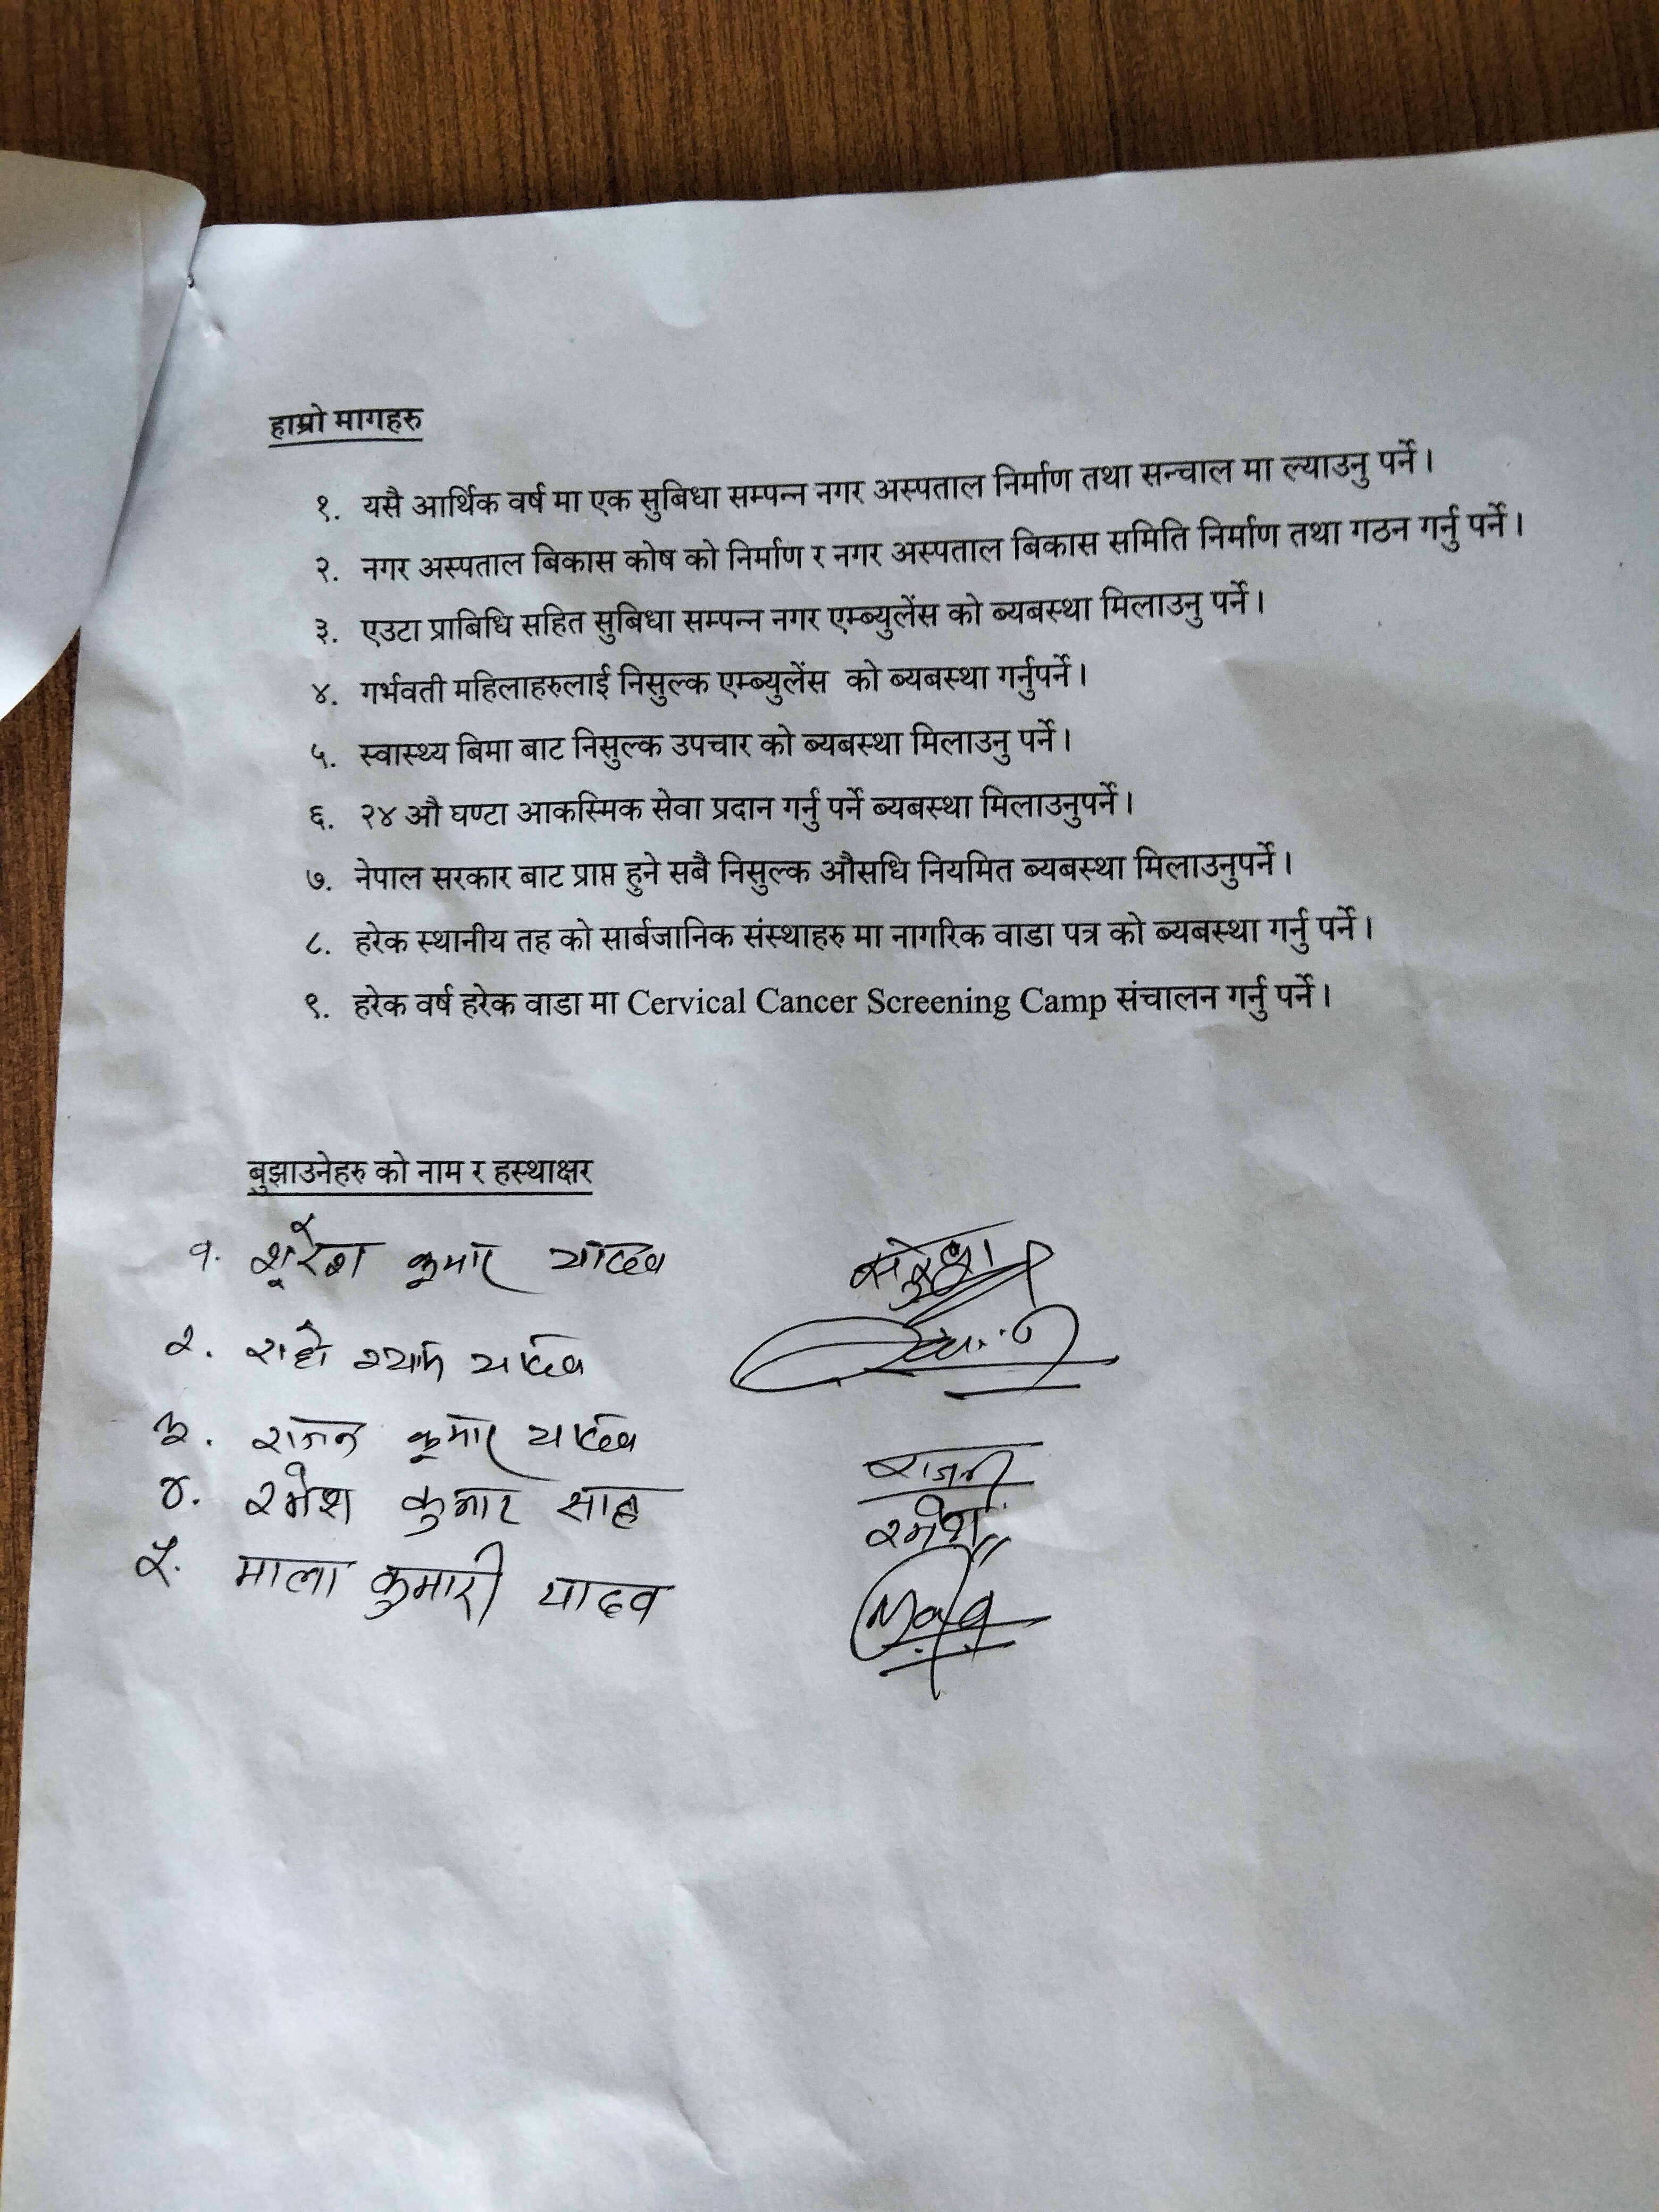 हाम्रो मागहरु
१. यसै आर्थिक वर्ष मा एक सुबिधा सम्पन्न नगर अस्पताल निर्माण तथा सन्चाल मा ल्याउनु पर्ने।
२. नगर अस्पताल बिकास कोष को निर्माण र नगर अस्पताल बिकास समिति निर्माण तथा गठन गर्नु पर्ने।
३. एउटा प्राबिधि सहित सुबिधा सम्पन्न नगर एम्ब्युलेंस को ब्यबस्था मिलाउनु पर्ने।
४. गर्भवती महिलाहरुलाई निसुल्क एम्ब्युलेंस को ब्यबस्था गर्नुपर्ने।
५. स्वास्थ्य बिमा बाट निसुल्क उपचार को ब्यबस्था मिलाउनु पर्ने।
६. २४ औ घण्टा आकस्मिक सेवा प्रदान गर्नु पर्ने ब्यबस्था मिलाउनुपर्ने।
७. नेपाल सरकार बाट प्राप्त हुने सबै निसुल्क औसधि नियमित ब्यबस्था मिलाउनुपर्ने।
८. हरेक स्थानीय तह को सार्बजानिक संस्थाहरु मा नागरिक वाडा पत्र को ब्यबस्था गर्नु पर्ने।
९. हरेक वर्ष हरेक वाडा मा Cervical Cancer Screening Camp संचालन गर्नु पर्ने।
बुझाउनेहरु को नाम र हस्थाक्षर
१. कुमार यादव
२. श्याम यादव
३. राजन कुमार यादव राजन
४. रमेश कुमार साह रमेश
५. माला कुमारी यादव Mala